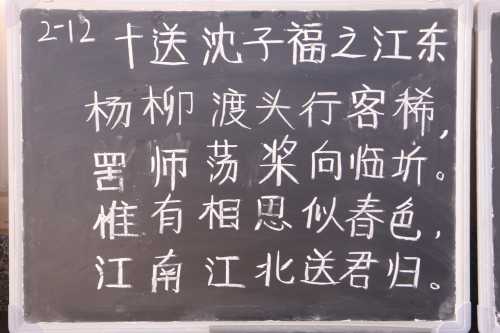 2-12 十送沈子福之江东
杨柳渡头行客稀,
罟师荡桨向临圻。
惟有相思似春色,
江南江北送君归。